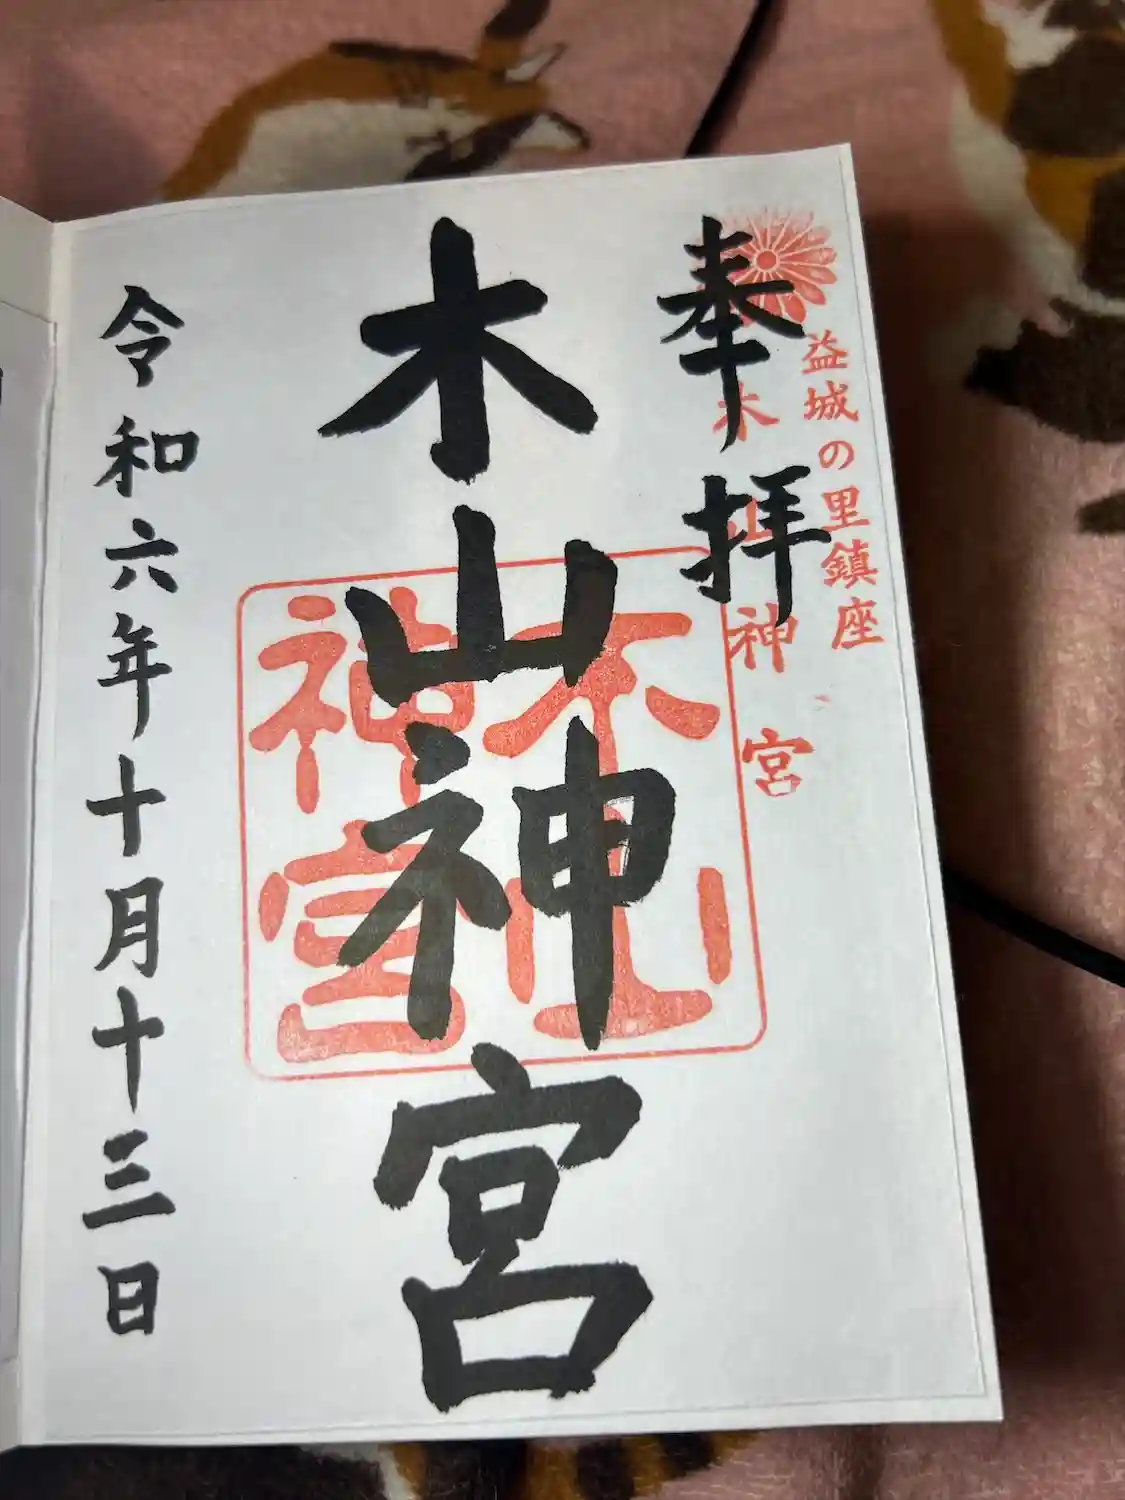 益城の里鎮座
木山神宮
奉拝
木山神宮
木山神宮
令和六年十月十三日